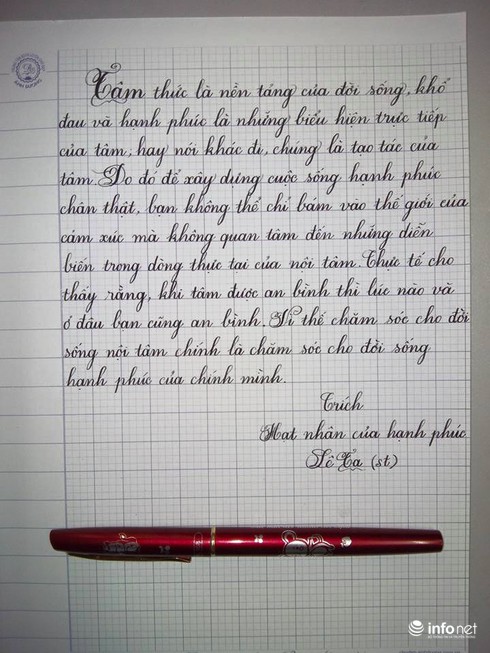 Tâm thức là nền tảng của đời sống, khổ
đau và hạnh phúc là những biểu hiện trực tiếp
của tâm, hay nói khác đi, chúng là tạo tác của
tâm. Do đó để xây dựng cuộc sống hạnh phúc
chân thật, bạn không thể chỉ bám vào thế giới của
cảm xúc mà không quan tâm đến những diễn
biến trong dòng thực tại của nội tâm. Thực tế cho
thấy rằng, khi tâm được an bình thì lúc nào và
ở đâu bạn cũng an bình. Vì thế chăm sóc cho đời
sống nội tâm chính là chăm sóc cho đời sống
hạnh phúc của chính mình.
Trích
Hạt nhân của hạnh phúc
(st)
infonet